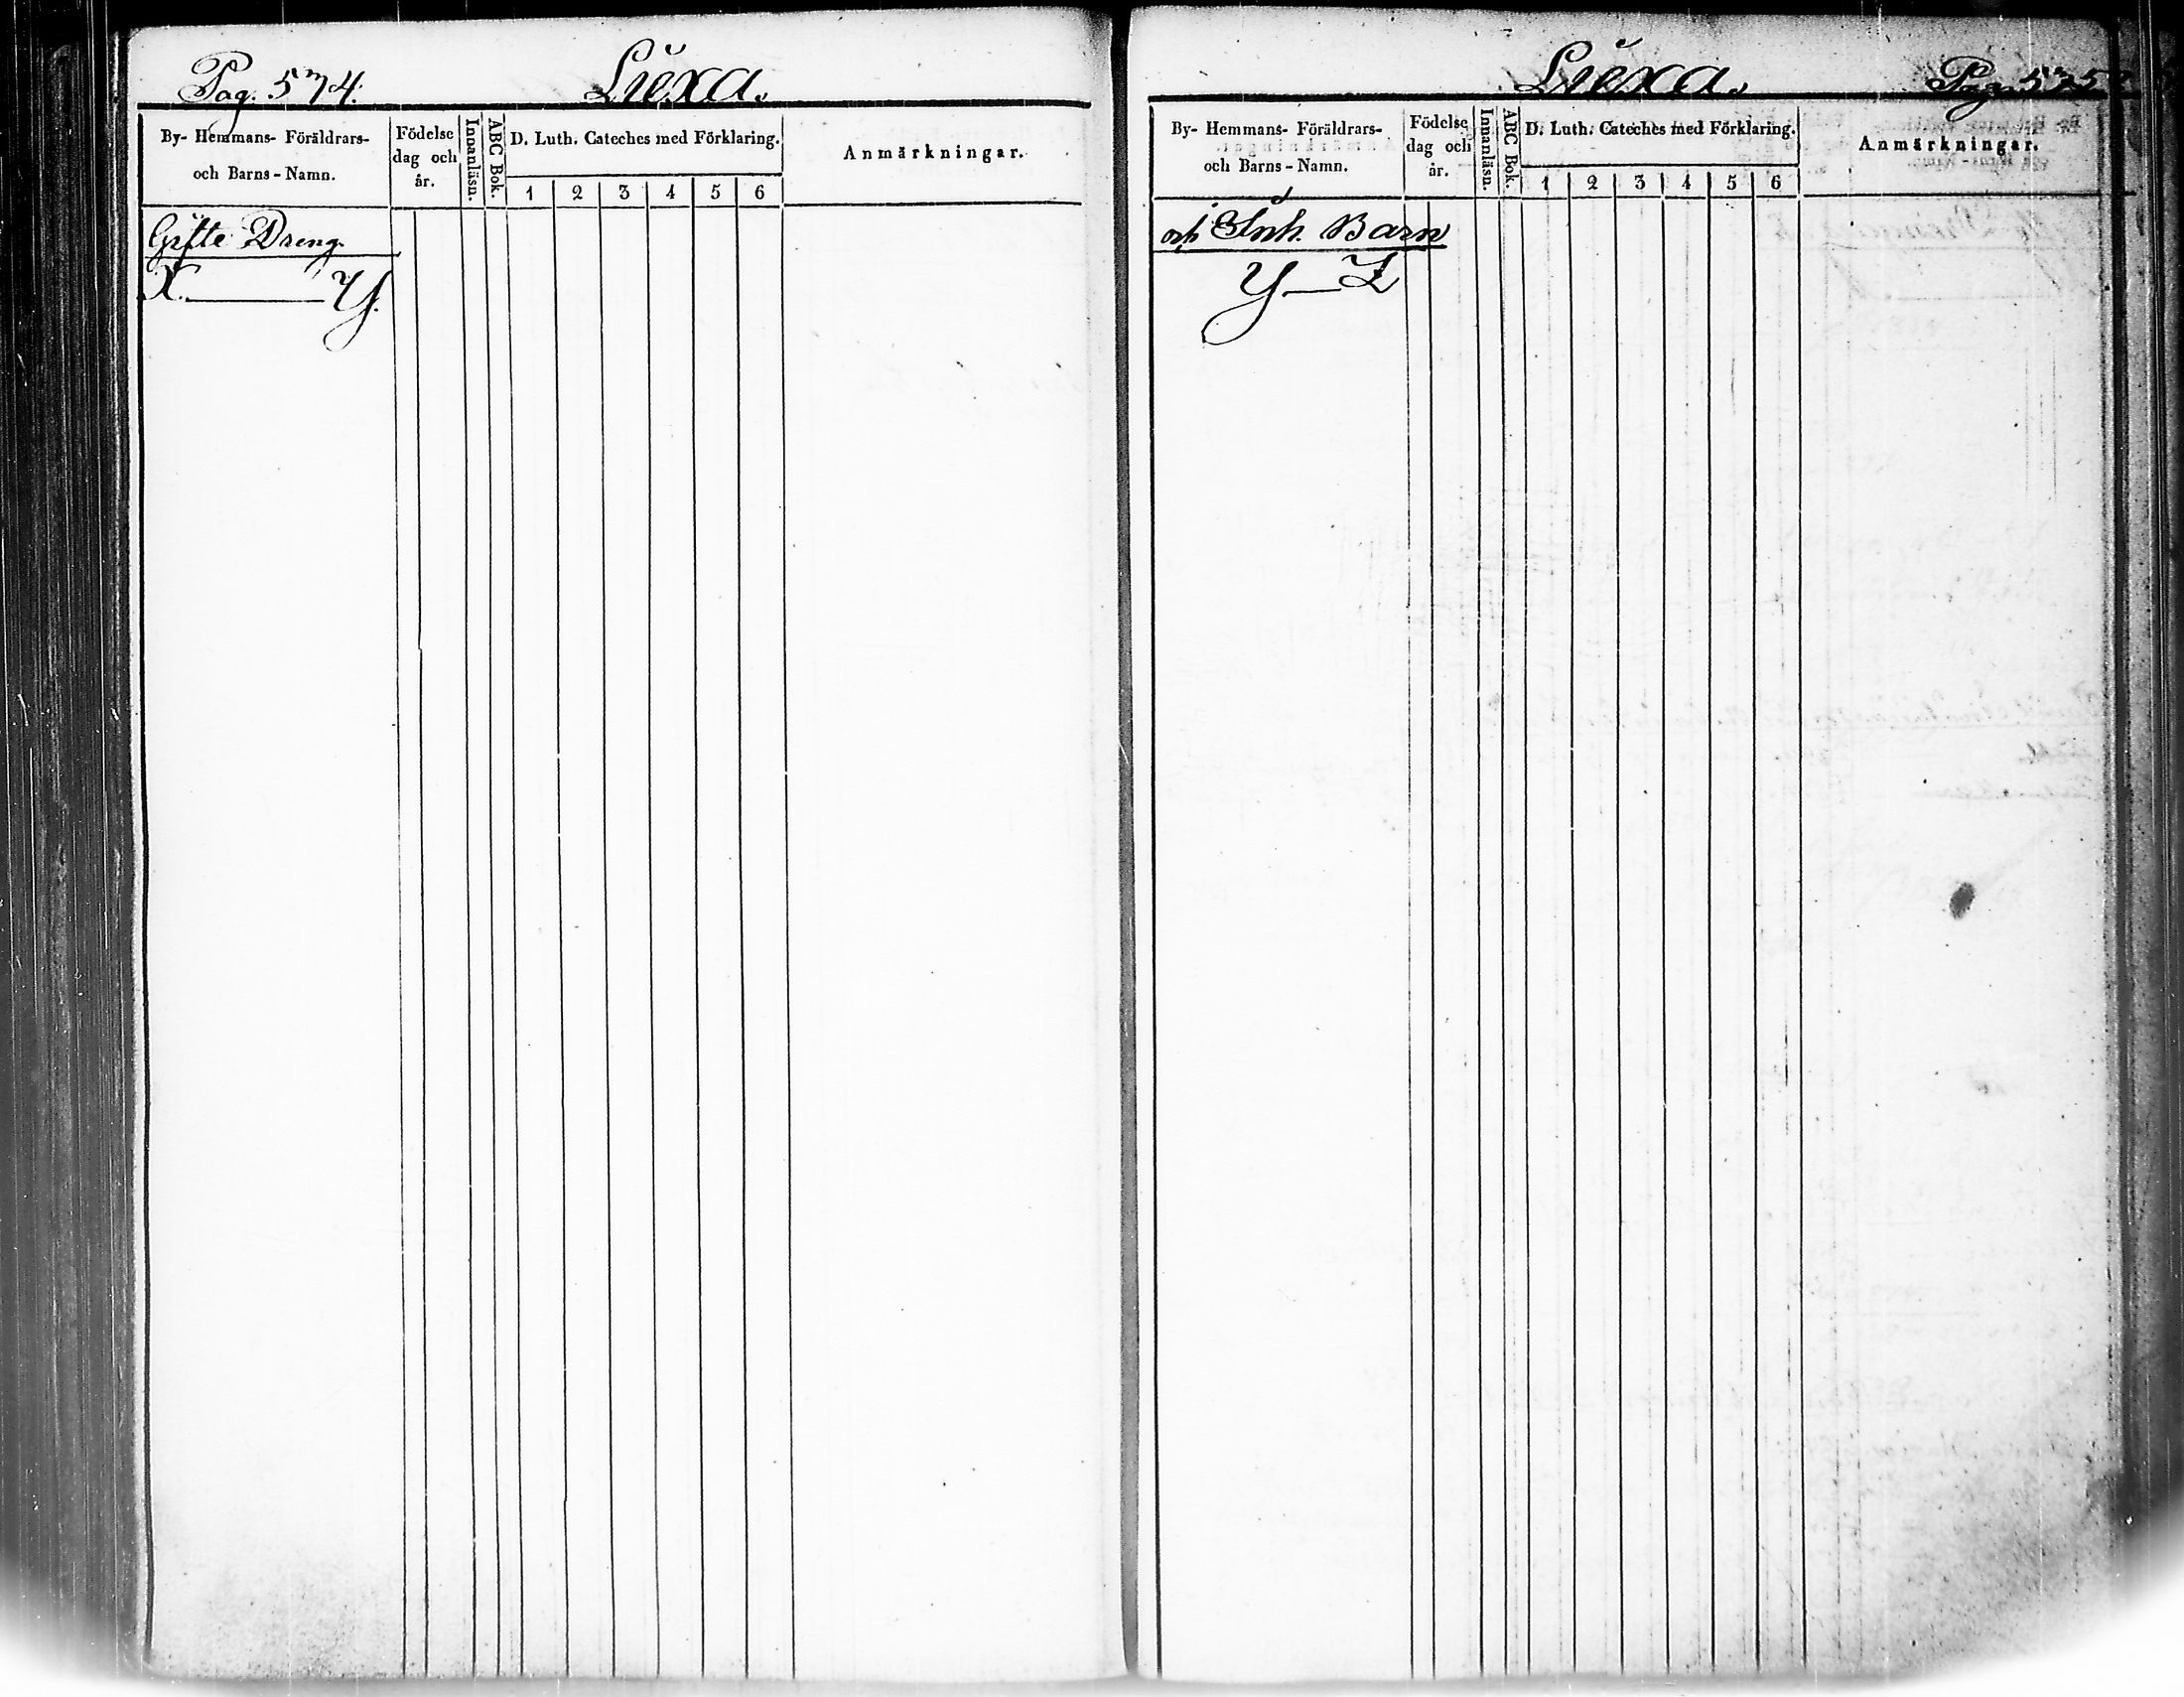 Pag. 574.
Luexa.
By- Hemmans- Föräldrars-
och Barns-Namn.
Födelse
dag och
år.
Innanläsn.
ABC Bok.
D. Luth. Cateches med Förklaring.
1 2 3 4 5 6
Anmärkningar.
Gifte Dreng.
X. Y.
Luexa.
Pag. 575
By- Hemmans- Föräldrars-
och Barns-Namn.
Födelse
dag och
år.
Innanläsn.
ABC Bok.
D. Luth. Cateches med Förklaring.
1 2 3 4 5 6
Anmärkningar.
och Inh. Barn
Y—Z